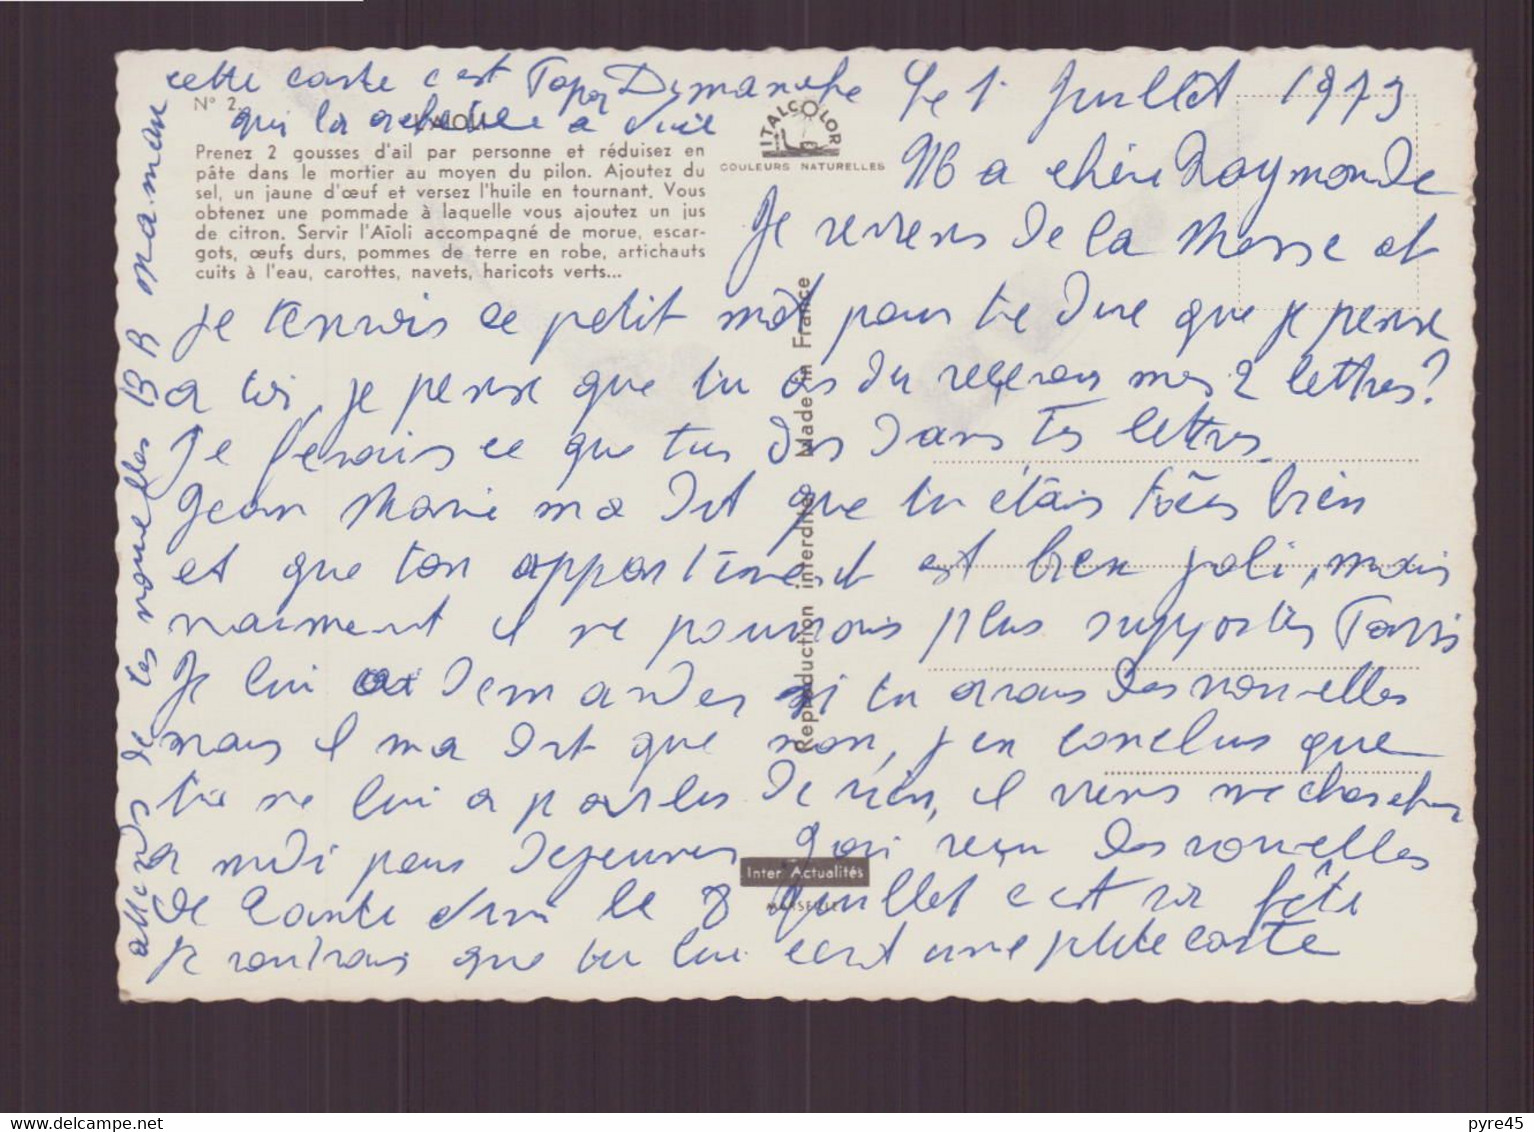 cette carte c'est Papa
qui la acheter a Nice
Dymanche Le 1 Juillet 1973
N° 2
L'AIOLI
Prenez 2 gousses d'ail par personne et réduisez en
pâte dans le mortier au moyen du pilon. Ajoutez du
sel, un jaune d'œuf et versez l'huile en tournant. Vous
obtenez une pommade à laquelle vous ajoutez un jus
de citron. Servir l'Aïoli accompagné de morue, escar-
gots, œufs durs, pommes de terre en robe, artichauts
cuits à l'eau, carottes, navets, haricots verts...
ITALCOLOR
COULEURS NATURELLES
Ma chère Raymonde
Je reviens de la Messe et
je t'envois ce petit mot pour te dire que je pense
a toi, je pense que tu as du reçevoir mes 2 lettres?
Je ferais ce que tu dis dans tes lettres.
Jean Marie ma dit que tu étais très bien
et que ton appartement est bien joli, mais
vraiment il ne pourrais plus supporter Paris
Je lui ai demander si tu avais des nouvelles
mais il ma dit que non, j'en conclus que
tu ne lui a parler de rien, il viens me chercher
a midi pour dejeuner J'ai reçu des nouvelles
de le 8 Juillet c'est sa fête
je voudrais que tu lui ecrit une petite carte
attends de tes nouvelles B B Maman
Reproduction interdite Made in France
Inter Actualités
MARSEILLE
www.delcampe.net
pyre45